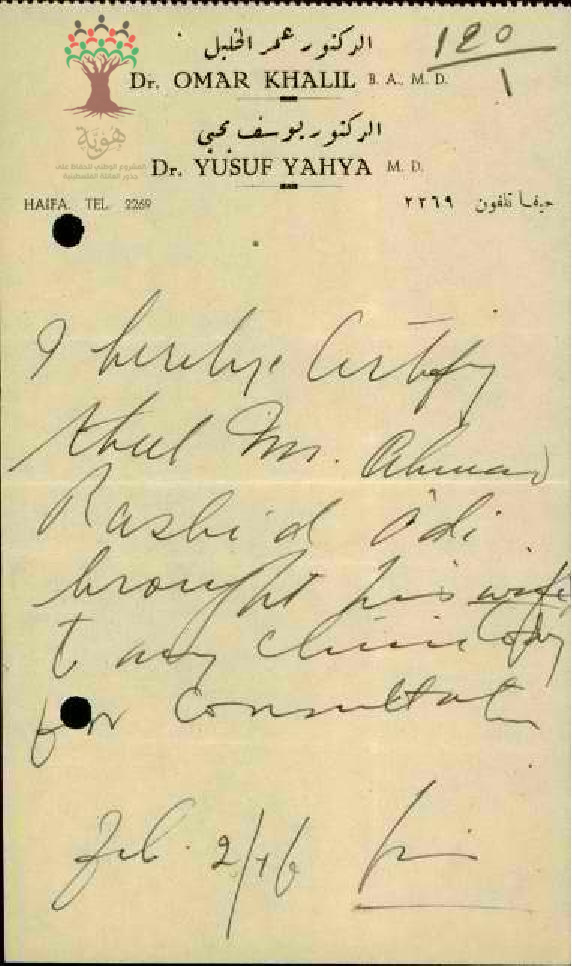 الدكتور عمر الخليل
120
1
Dr. OMAR KHALIL B. A., M. D.
الدكتور يوسف يحيى
هوية
المشروع الوطني للحفاظ على
جذور العائلة الفلسطينية
Dr. YUSUF YAHYA M. D.
HAIFA. TEL. 2269
حيفا تلفون ٢٢٦٩
I hereby certify
that Mr. Ahmad
Rashid Odi
brought his wife
to my clinic today
for consultation
Feb. 2/46